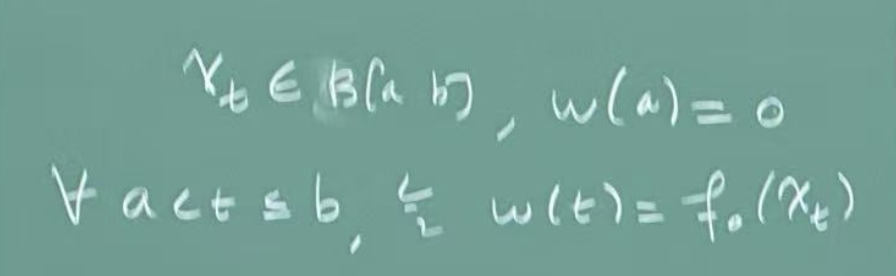 χ_t ∈ B[a b], w(a) = 0
∀ a < t ≤ b, w(t) = f₀(χ_t)